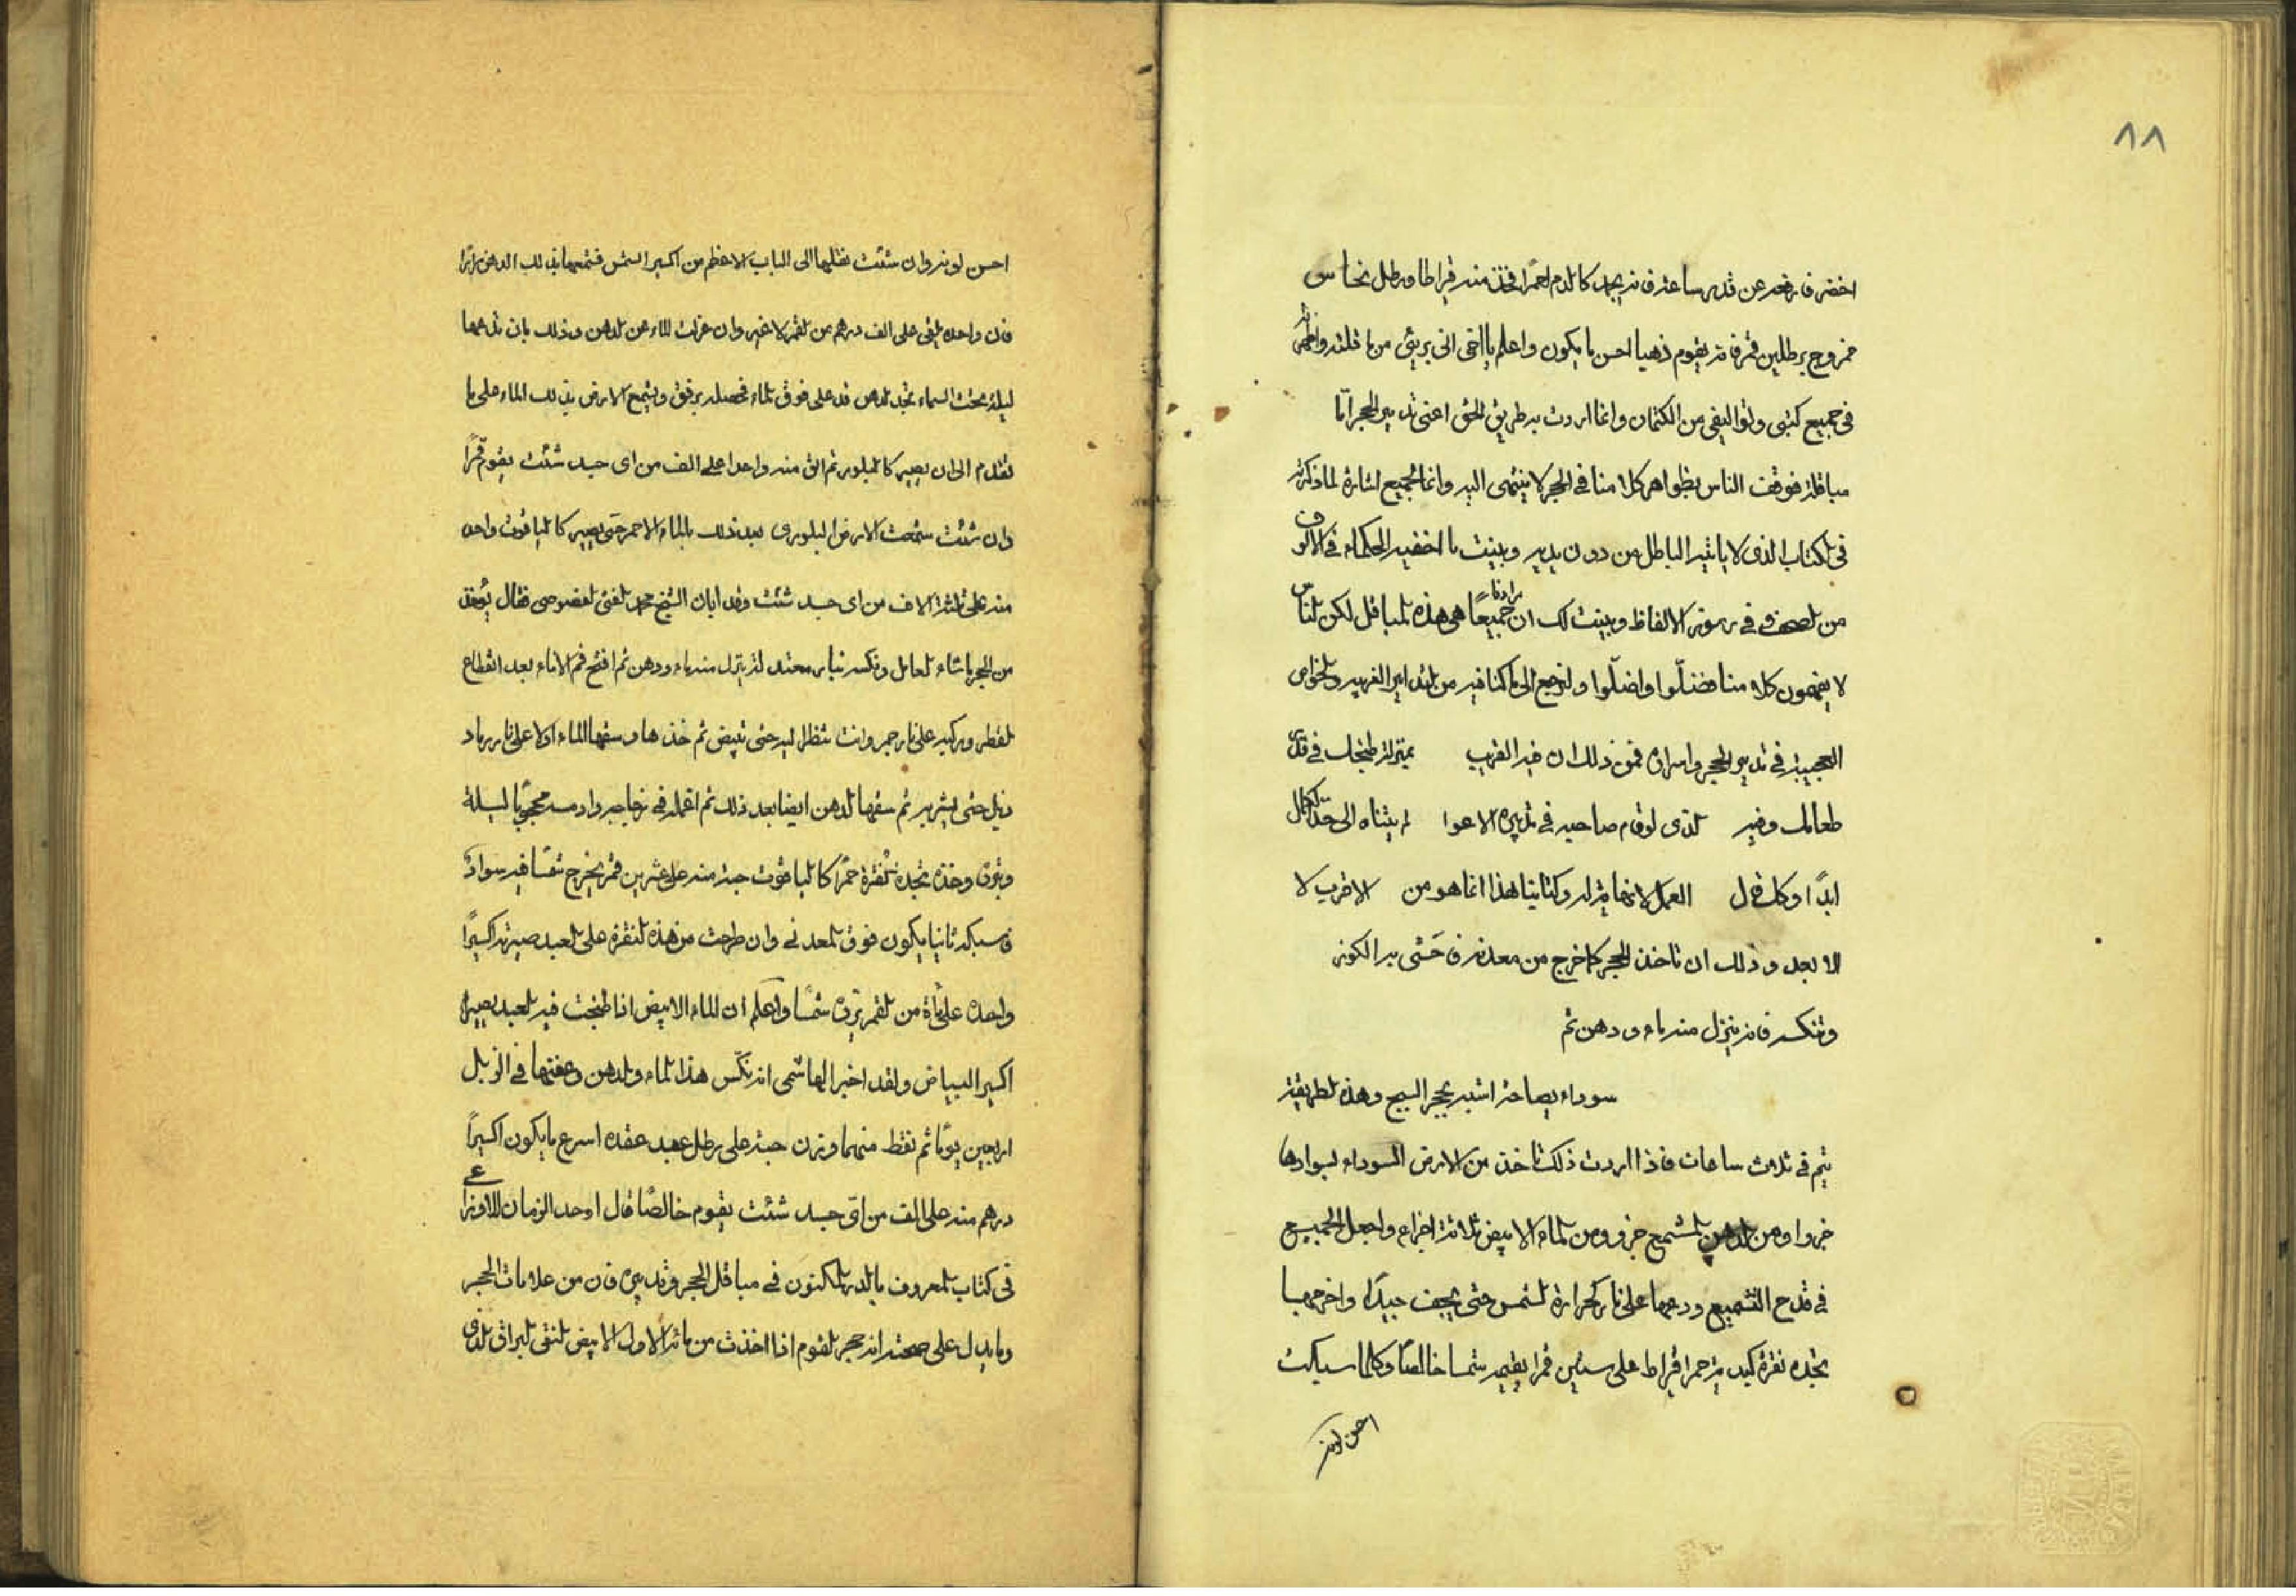 ٨٨
اخضر فارفعه عن قدر ساعة فانه يجمد كالدم احمرا فخذ منه قيراطا ورطل نحاس
ممزوج برطلين قمر فانه يقوم ذهبا احسن ما يكون واعلم يا اخى انى برئ من ما قلته واظهرته
فى جميع كتبى وتواليفى من الكتمان وانما اردت به طريق الحق اعنى تدبير الحجر امّا
مباقلة فوقف الناس بظواهر كلامنا فى الحجر لا ينتهى اليه وانما الجميع اشارة لما ذكرته
فى الكتاب الذى لا ياتيه الباطل من دون يديه وبينت ما اخفيه الحكماء فى الالوف
من الصحف فى رموز الالفاظ وبينت لك ان مرادنا جميعًا هى هذه المباقل لكن الناس
لا يفهمون كلامنا فضلّوا واضلّوا ولنرجع الى ما كنا فيه من التدابير الغريبه والخواص
العجيبة فى تدبير الحجر واسراره فمن ذلك ان فيه القريب بمنزلة طبخك فى قدر
طعامك وفيه الذى لو قام صاحبه فى تدبيره الاعوا لم يتناه الى حدّ الكمال
ابدًا وكل فى ل العمل لا نهاية له وكتابنا هذا انما هو من الاقرب لا
الابعد وذلك ان تاخذ الحجر كما خرج من معدنه فاحشى به الكوز
وتنكسه فانه ينزل منه ماء ودهن ثم
سوداء بصاصة اشبه بحجر السبج وهذه الطريقة
يتم فى ثلاث ساعات فاذا اردت ذلك تاخذ من الارض السوداء لسوادها
جزوا ومن الدهن المشمع جزو ومن الماء الابيض ثلاثة اجزاء واجعل الجميع
فى قدح التشميع ودعها على نار كحرارة الشمس حتى يجف جيدًا واخرجها
تجده نقرة كبدية حمرا قيراط على ستين قمرا يقيمه شمسا خالصًا وكلما سبكت
احسن لونه
احسن لونه وان شئت نقلها الى الباب الاعظم من اكسير الشمس فشمعها بذلك الدهن مرارًا
فان واحده يلقى على الف درهم من القمر لا غير وان عزلت الماء عن الدهن وذلك بان تدعهما
ليلة تحت السماء تجد الدهن قد على فوق الماء فحصله برفق وشمع الارض بذلك الماء على ما
تقدم الى ان يصير كالبلور ثم الق منه واحدا على الف من اى جسد شئت يقوم قمرًا
وان شئت شمعت الارض البلورى بعد ذلك بالماء الاحمر حتى يصير كالياقوت واحد
منه على ثلثة الاف من اى جسد شئت وقد ابان الشيخ محمد القصوصى فقال يُؤخذ
من الحجر ما شاء العامل ونكسه بنار معتدلة ينزل منه ماء ودهن ثم افتح فم الاناء بعد انقطاع
القطر وركبه على نار جمر وانت تنظر اليه حتى تبيض ثم خذها وسقها الماء اولا على نار رماد
ذيل حتى يشربه ثم سقها الدهن ايضا بعد ذلك ثم اعمله فى زجاجه وادمسه محجوبًا ليلة
وبرّده وخذه تجده نُقرة حمرًا كالياقوت حبة منه على عشرين قمر يخرج شمسًا فيه سوادً
فاسبكه ثانيا يكون فوق المعدنى وان طرحت من هذه النقرة على العبد صيرته اكسيرًا
واحده على مأة من القمر ترده شمسًا واعلم ان الماء الابيض اذا طبخت فيه العبد يصير
اكسير البياض ولقد اخبر الهاشمى انه نكّس هذا الماء والدهن وعفنها فى الزبل
اربعين يومًا ثم نقط منهما وزن حبة على رطل عبد عقده اسرع ما يكون اكسيرًا
درهم منه على الف من اىّ جسد شئت يقوم خالصًا قال اوحد الزمان الاوزاعى
فى كتاب المعروف بالدر المكنون فى مباقل الحجر وتدبيره فان من علامات الحجر
وما يدل على صحته انه حجر القوم اذا اخذت من مائه الاول الابيض النقى البراق الذى